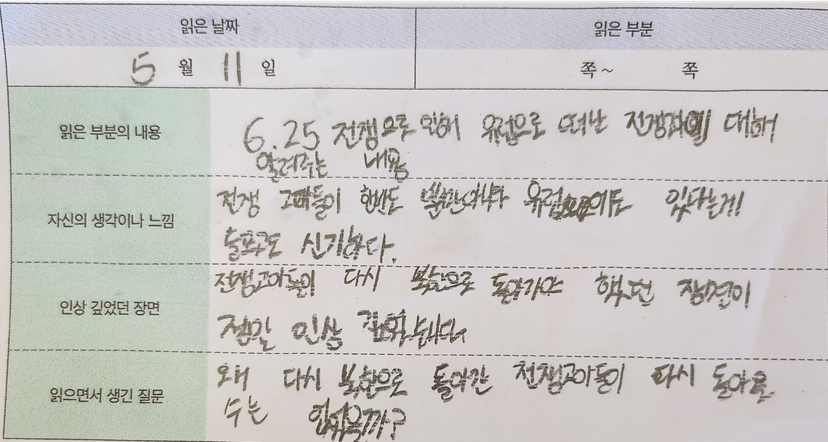 읽은 날짜 읽은 부분
5 월 11 일 쪽~ 쪽
읽은 부분의 내용
6.25 전쟁으로 인해 유럽으로 떠난 대해
알려주는 내용
자신의 생각이나 느낌
전쟁 고아들이 한반도 뿐만아니라 유럽에도 있다는게
슬프고도 신기하다.
인상 깊었던 장면
전쟁고아들이 다시 북한으로 돌아가야 했던 장면이
정말 인상
읽으면서 생긴 질문
왜 다시 북한으로 돌아간 전쟁고아들이 다시 돌아올
수는